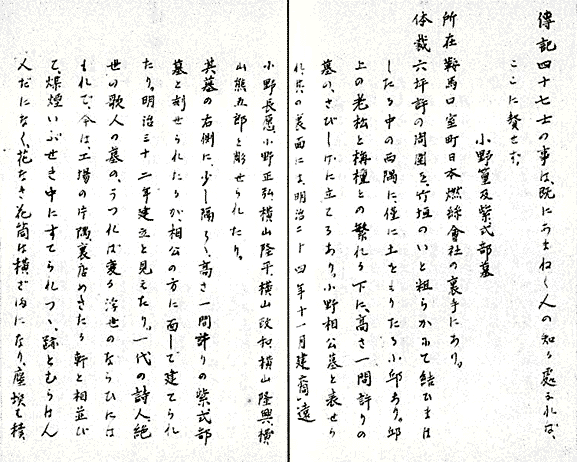 傳記四十七士の事は、既にあまねく人の知り處なれば、
ここに贅せず、
小野篁及紫式部墓
所在 鞍馬口室町日本燃絲會社の裏手にあり。
体裁 六坪許の周圍を、竹垣のいと粗らかにて結びまは
したる中の西隅に、僅に土をもりたる小邱あり。邱
上の老松と梅檀との繁れる下に、高さ一間許りの
墓の、さびしげに立てるあり、小野相公墓と表せら
れ、其の裏面には、明治二十四年十一月建裔遠
小野長愿、小野正弘、横山隆平、横山政和、横山隆興、横
山熊五郎と彫せられたり。
其墓の右側に、少し隔り、高さ一間許りの紫式部
墓と刻せられたるが、相公の方に面して建てられ
たり。明治三十二年建立と見えたり。一代の詩人、絶
世の歌人の墓の、うつれば変る浮世のならひには
もれで、今は、工場の片隅裏店めきたる軒と相並び
て、煤煙いぶせき中にすてられつゝ、跡とむらはん
人だになく、花なき花筒は横ざまになり、塵埃も積